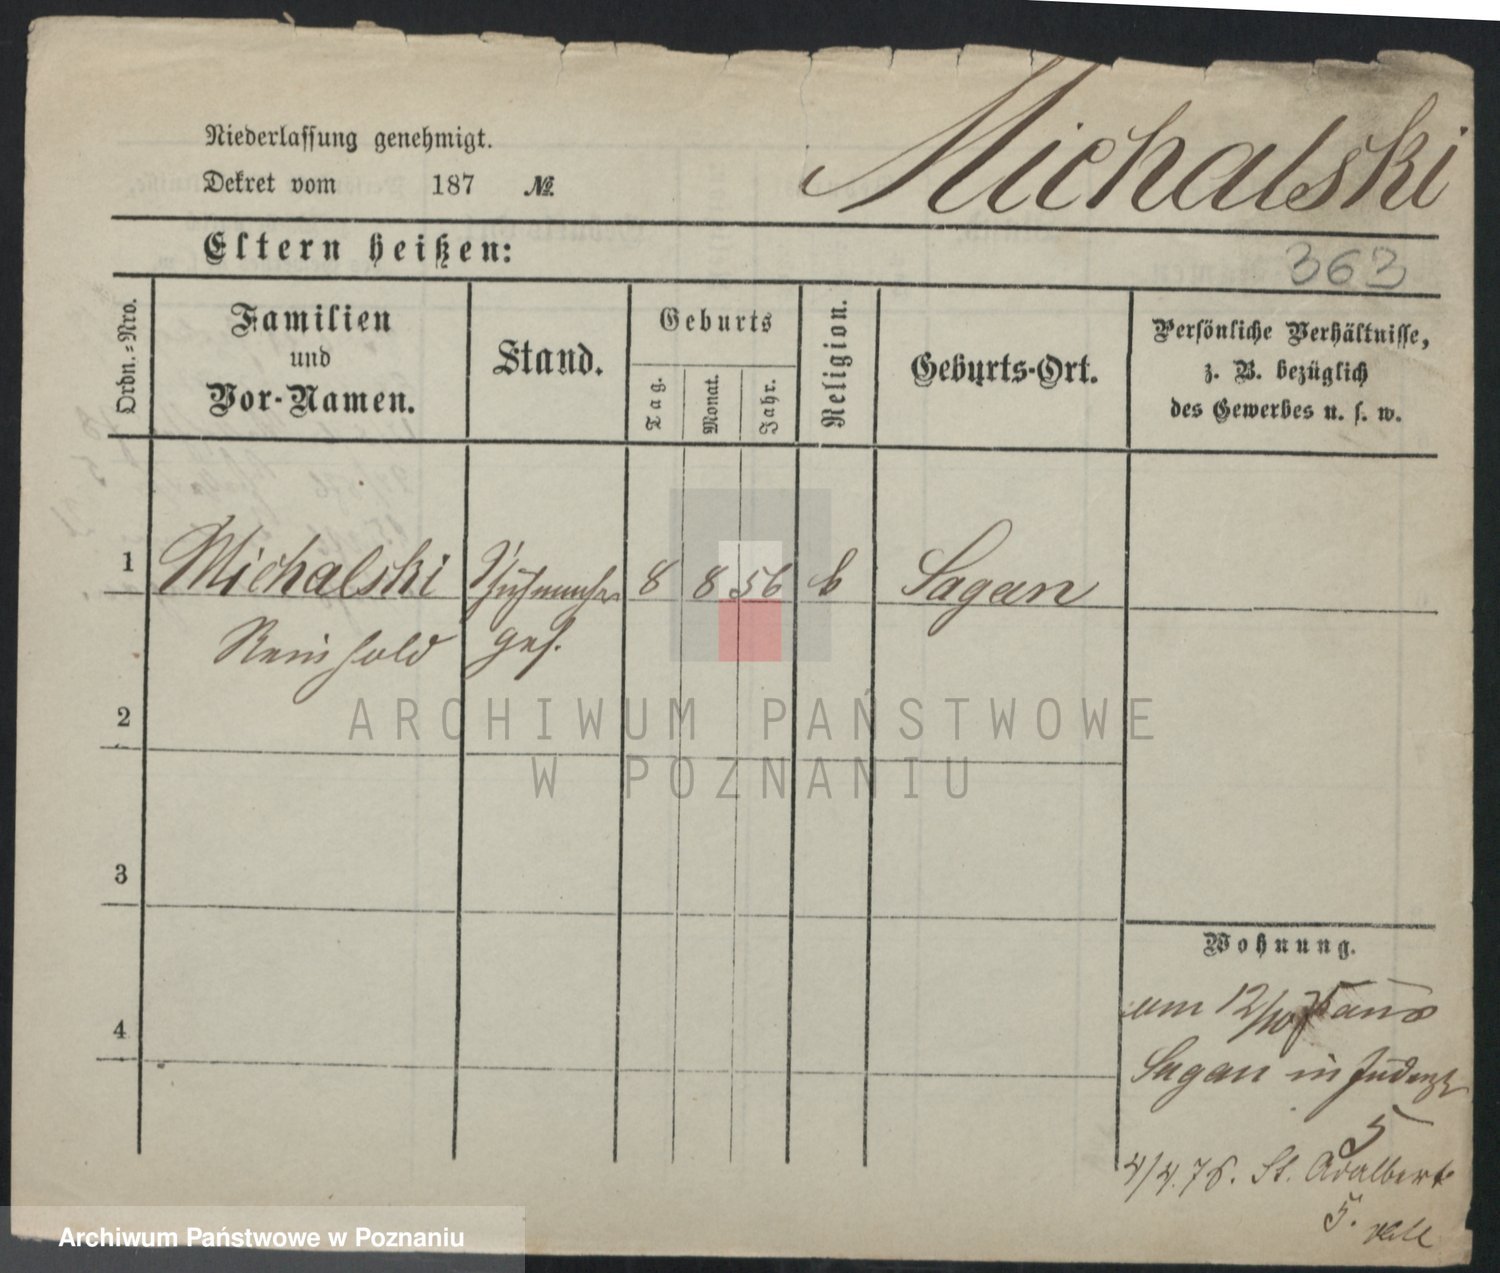 Michalski
Niederlassung genehmigt.
Dekret vom 187 №.
Eltern heißen:
363
Ordn.=Nro.
Familien
und
Vor-Namen.
Stand.
Geburts
Tag.
Monat.
Jahr.
Religion.
Geburts-Ort.
Persönliche Verhältnisse,
z. B. bezüglich
des Gewerbes u. s. w.
1 Michalski Schuhmacher 8 8 56 k Sagan
Reinhold ges.
2
3
4
ARCHIWUM PAŃSTWOWE
W POZNANIU
Wohnung.
am 12/10 75 aus
Sagan in Judenst
5
4/4.76. St. Adalbert
5.
Archiwum Państwowe w Poznaniu